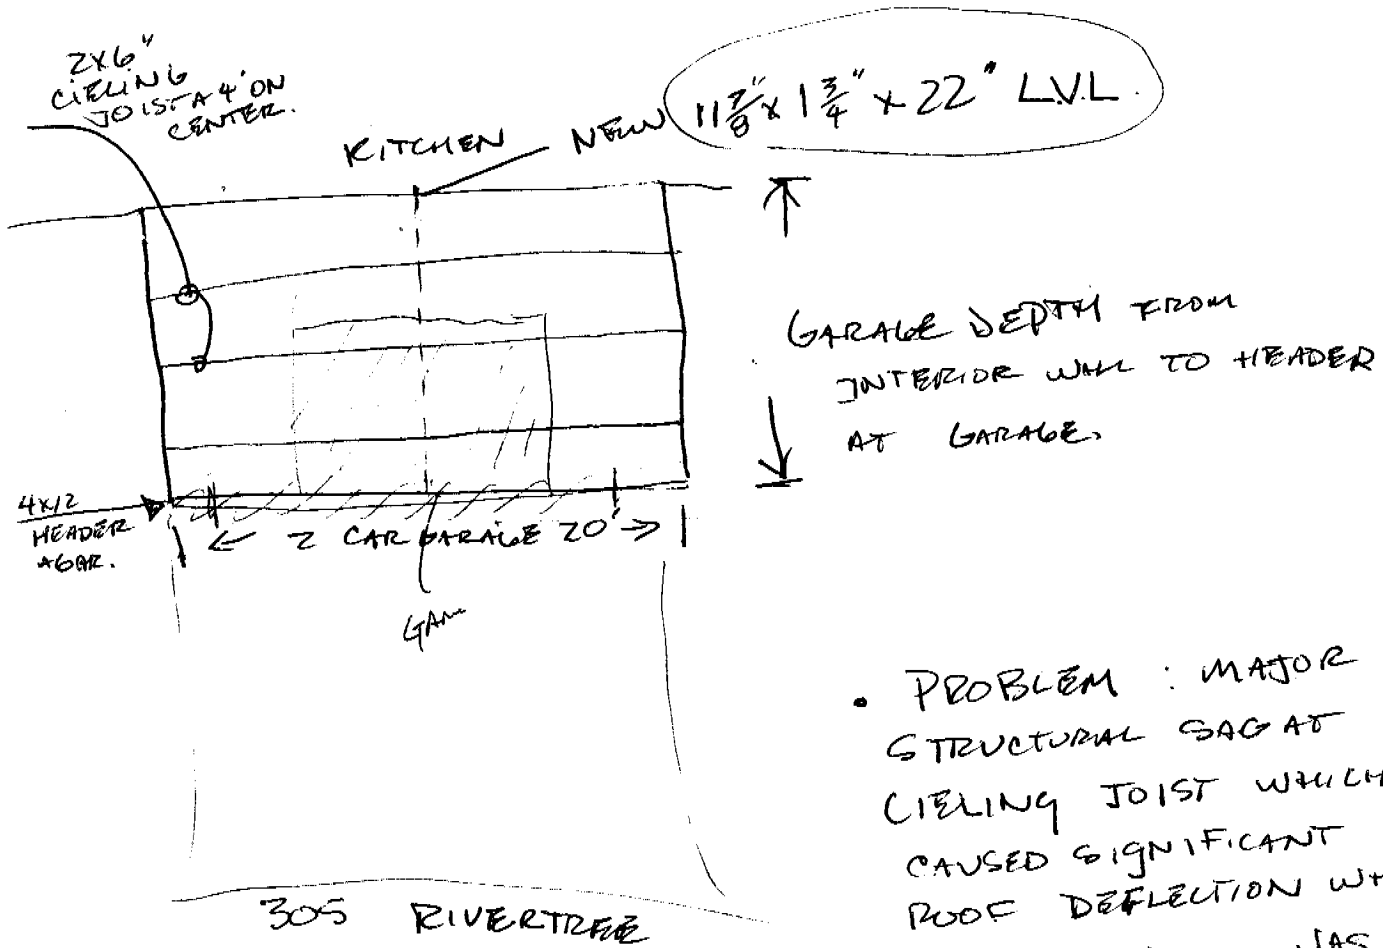 2X6"
CIELING
JOIST A 4' ON
CENTER.
KITCHEN
NEW 11 7/8" x 1 3/4" x 22" L.V.L.
GARAGE DEPTH FROM
INTERIOR WALL TO HEADER
AT GARAGE.
4X12
HEADER
2 CAR GARAGE 20'
• PROBLEM : MAJOR
STRUCTURAL SAG AT
CIELING JOIST WHICH
CAUSED SIGNIFICANT
ROOF DEFLECTION
305 RIVERTREE